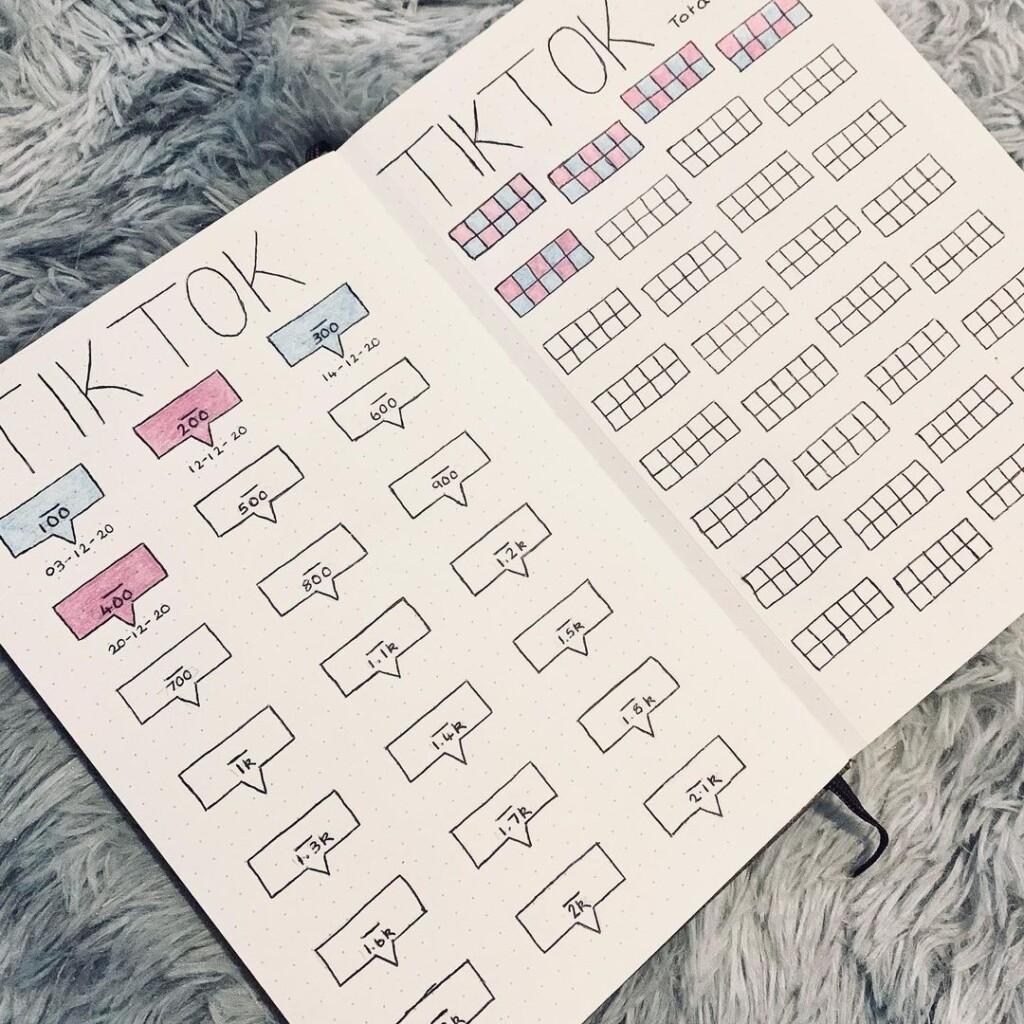 TIKTOK
100 200 300
03-12-20 12-12-20 14-12-20
400 500 600
20-12-20
700 800 900
1k 1.1k 1.2k
1.3k 1.4k 1.5k
1.6k 1.7k 1.8k
2k 2.1k
TIKTOK